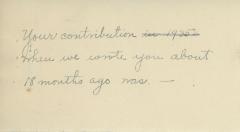 Your contribution
when we wrote you about
18 months ago was. —